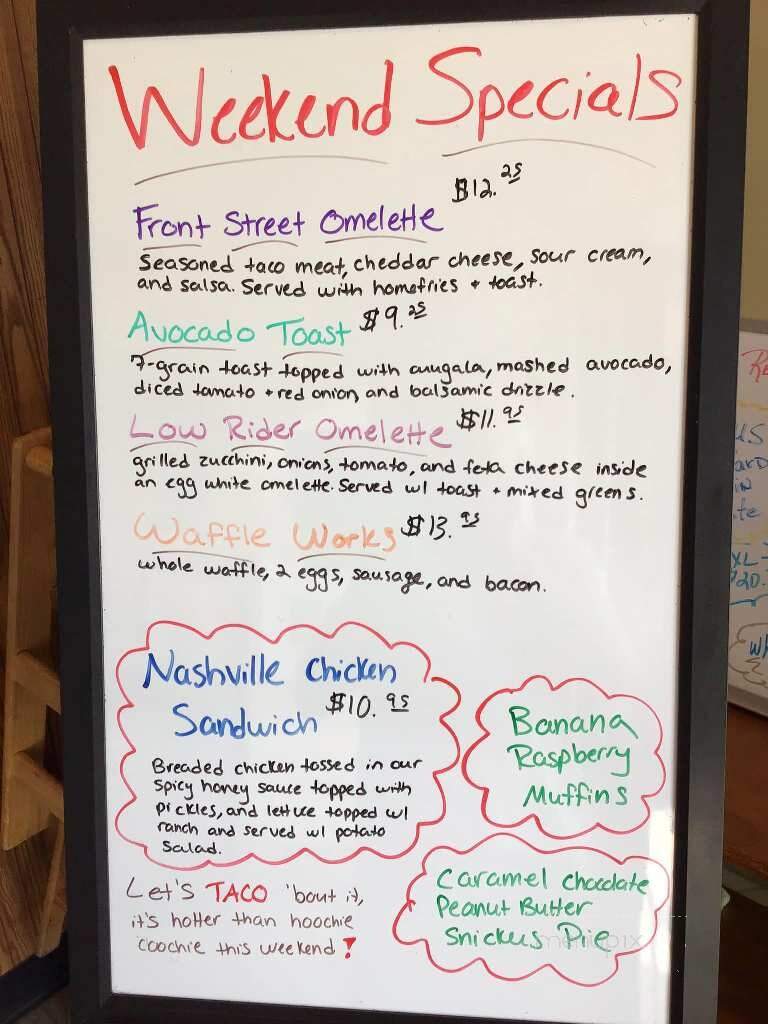 Weekend Specials
$12.25
Front Street Omelette
Seasoned taco meat, cheddar cheese, sour cream,
and salsa. Served with homefries + toast.
Avocado Toast $9.25
7-grain toast topped with arugala, mashed avocado,
diced tomato + red onion, and balsamic drizzle.
Low Rider Omelette $11.95
grilled zucchini, onions, tomato, and feta cheese inside
an egg white omelette. Served w/ toast + mixed greens.
Waffle Works $13.95
whole waffle, 2 eggs, sausage, and bacon.
Nashville Chicken
Sandwich $10.95
Breaded chicken tossed in our
spicy honey sauce topped with
pickles, and lettuce topped w/
ranch and served w/ potato
salad.
Banana
Raspberry
Muffins
Caramel Chocolate
Peanut Butter
Snickers Pie
Let's TACO 'bout it,
it's hotter than hoochie
coochie this weekend!
menupix
XL-